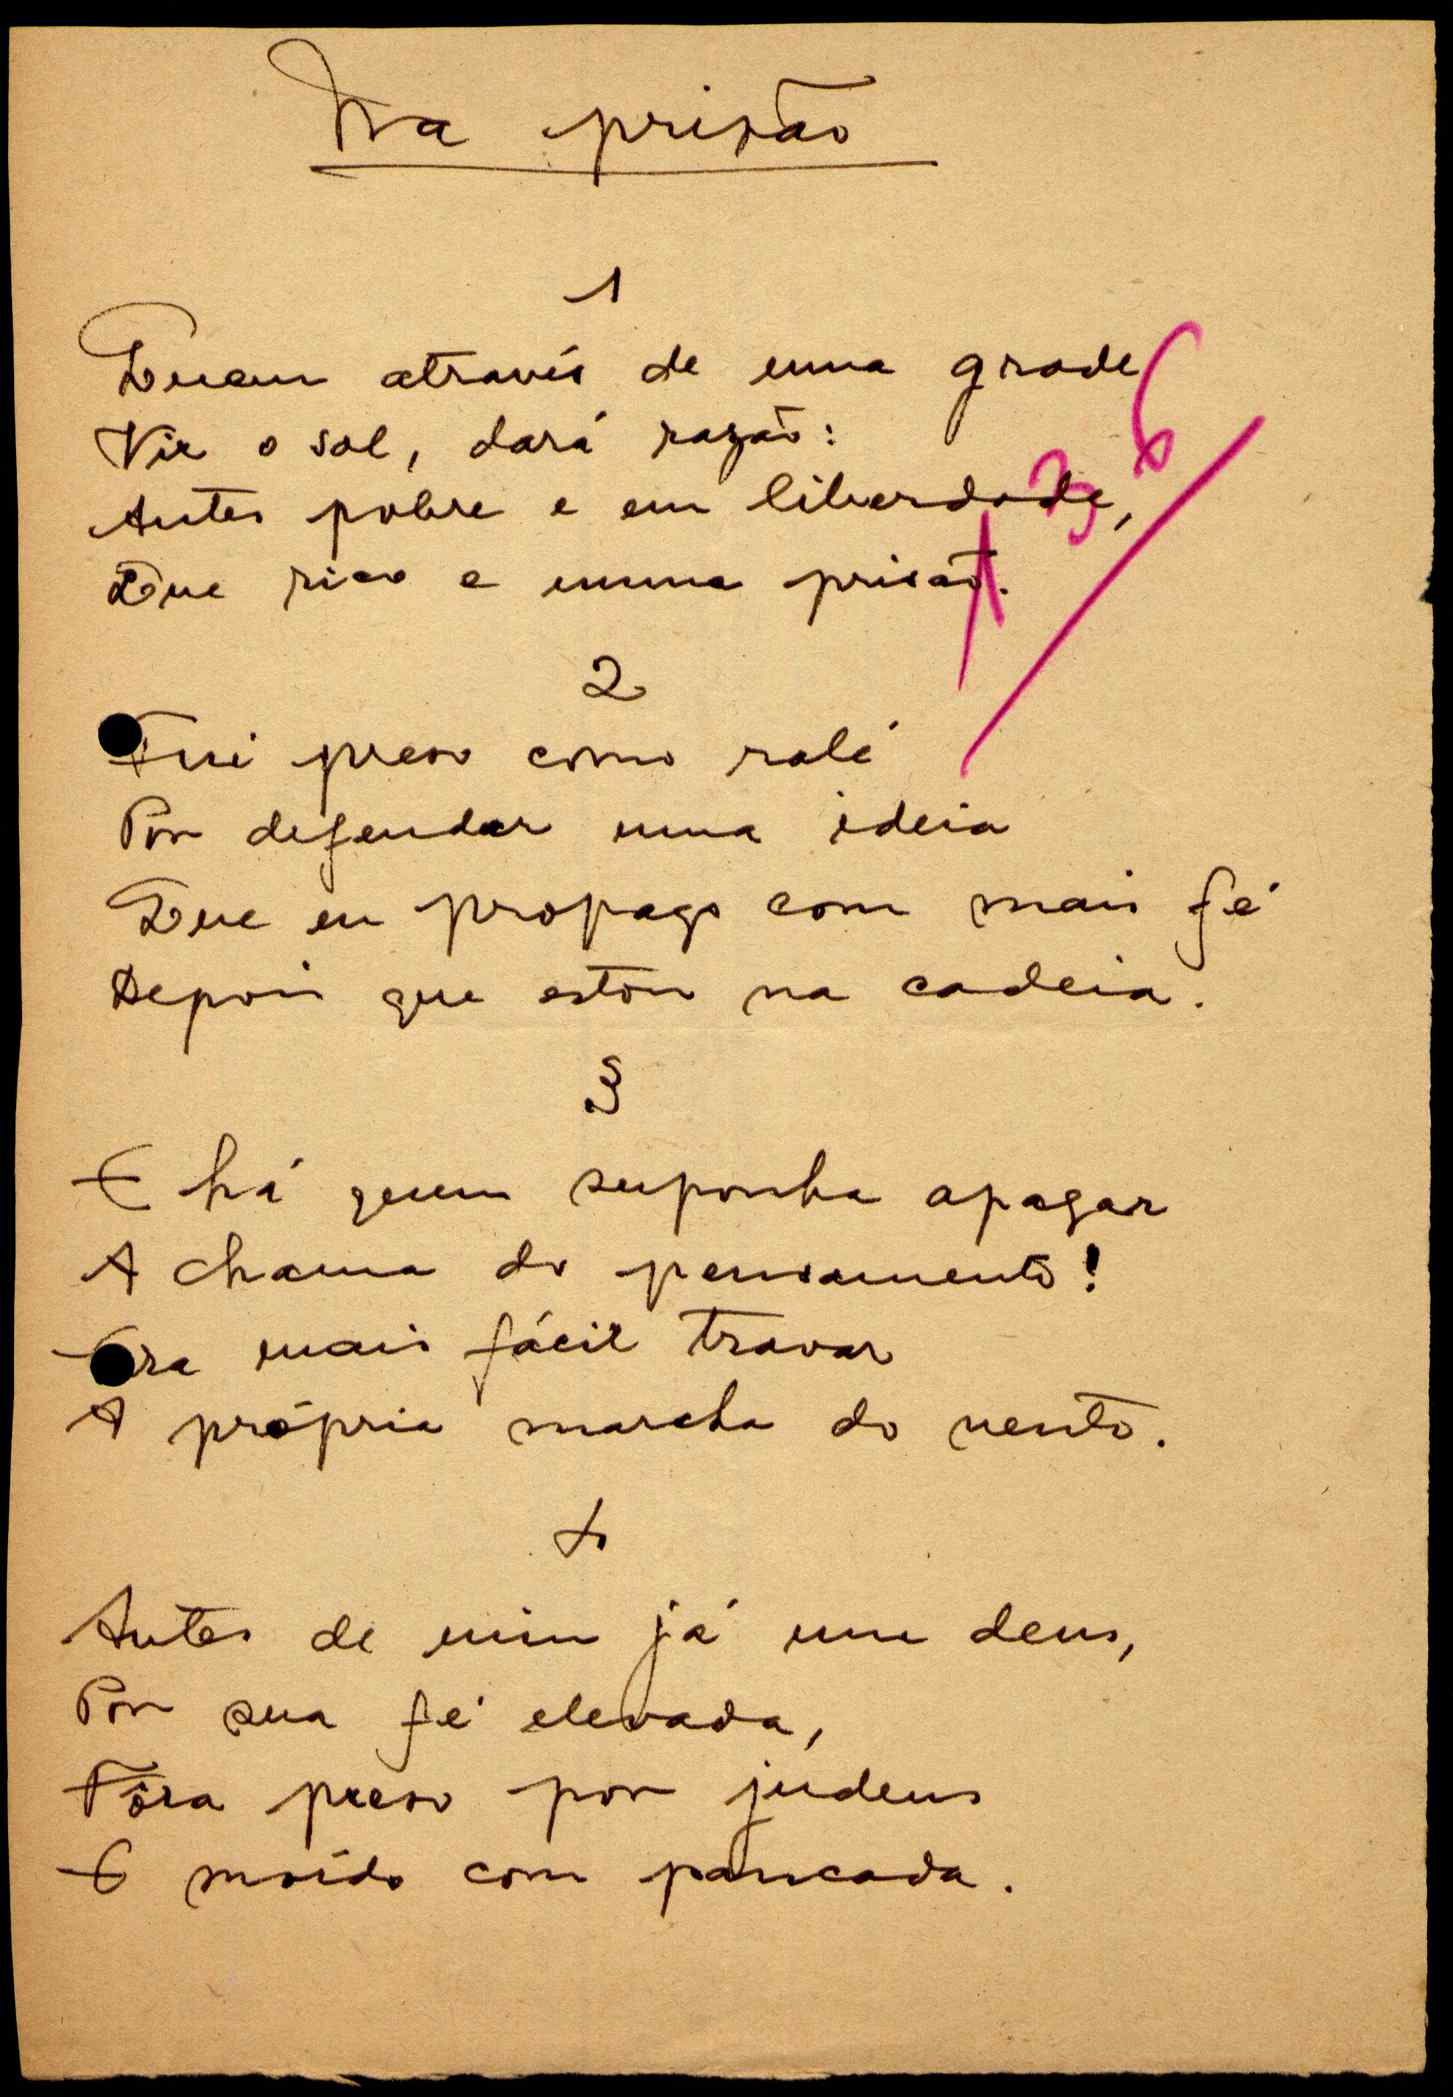 Na prisão
1
Quem através de uma grade
Vir o sol, dará razão:
Antes pobre e em liberdade,
Que rico e numa prisão.
136
2
Fui preso como ralé
Por defender uma ideia
Que eu propago com mais fé
Depois que estou na cadeia.
3
E há quem suponha apagar
A chama do pensamento!
Era mais fácil travar
A própria marcha do vento.
4
Antes de mim já um deus,
Por sua fé elevada,
Fôra preso por judeus
E moído com pancada.